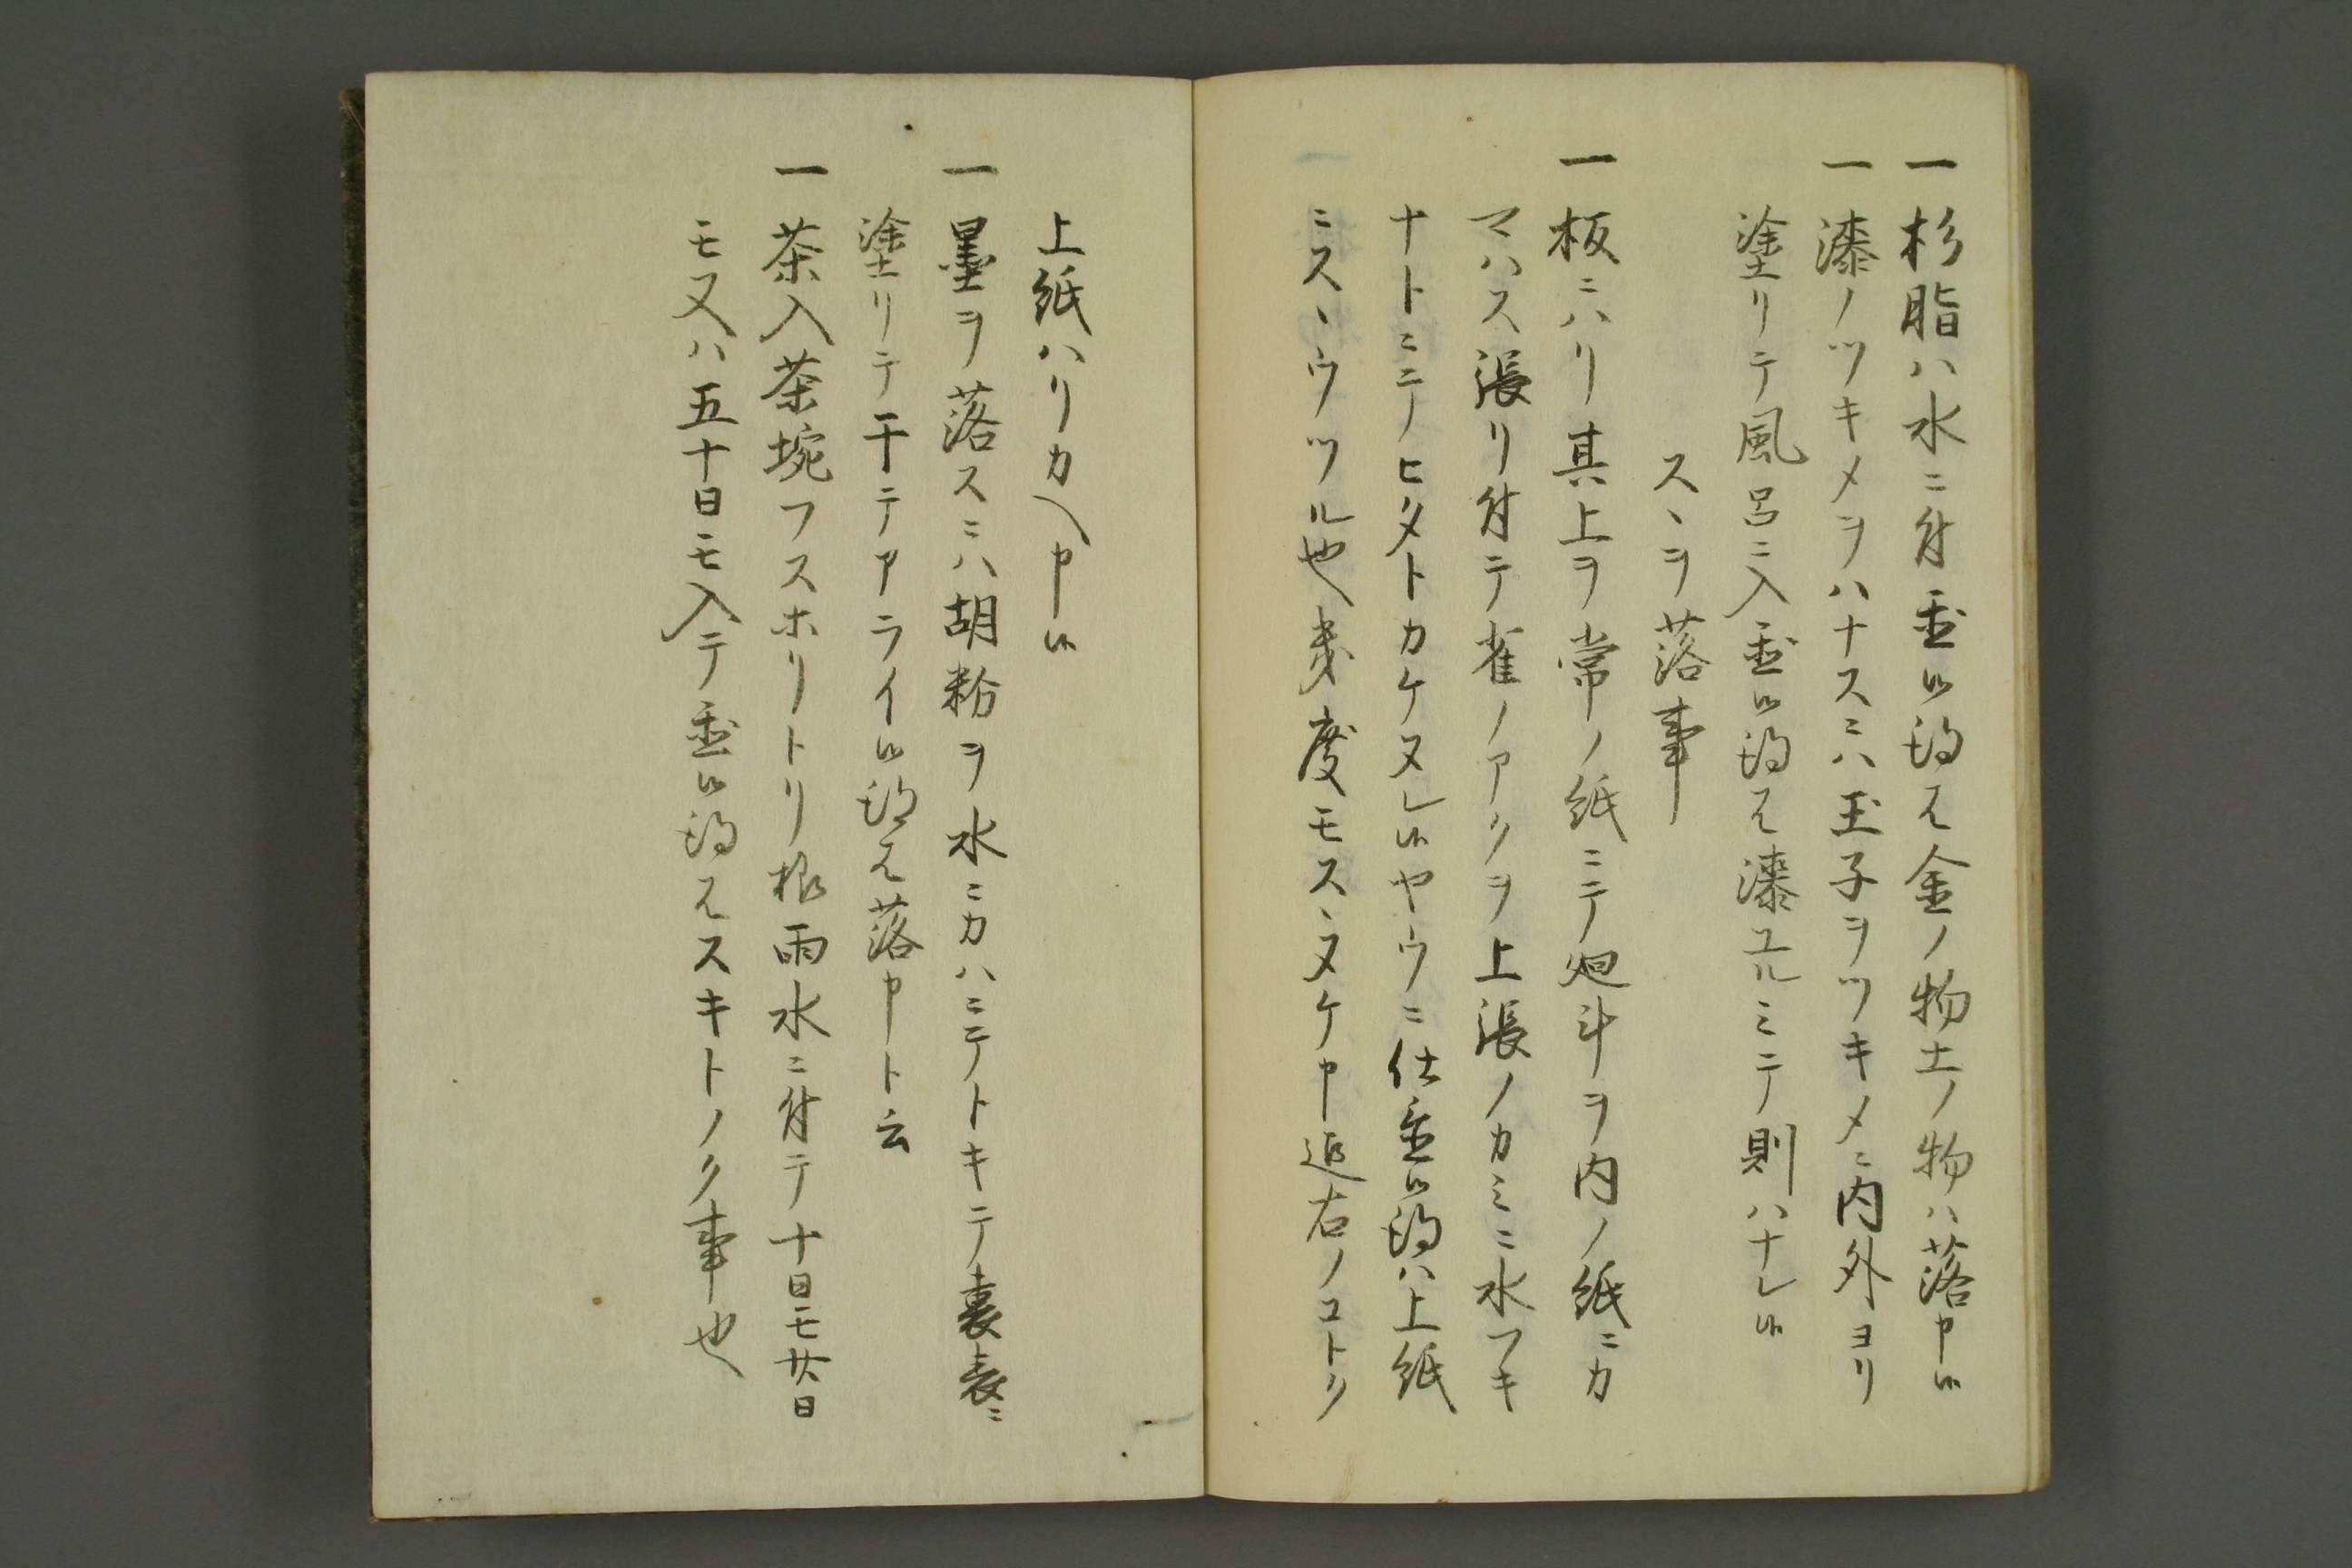 一 杉脂ハ水ニ付置候得ハ金ノ物土ノ物ハ落申候
一 漆ノツキメヲハナスニハ玉子ヲツキメニ内外ヨリ
塗リテ風呂ニ入置候得ハ漆ユルミテ則ハナレ候
スヽヲ落事
一 板ニハリ其上ヲ常ノ紙ニテ廻斗ヲ内ノ紙ニカ
マハス張リ付テ雀ノアクヲ上張ノカミニ水フキ
ナトニテヒタトカケヌレ候ヤウニ仕置候得ハ上紙
ニスヽウツル也幾度モスヽヌケ申迄右ノコトク
上紙ハリカヘ申候
一 墨ヲ落スニハ胡粉ヲ水ニカハニテトキテ裏表ニ
塗リテ干テアライ候得ハ落申ト云
一 茶入茶埦フスホリトリ様雨水ニ付テ十日モ廿日
モ又ハ五十日モ入テ置候得ハスキトノク事也